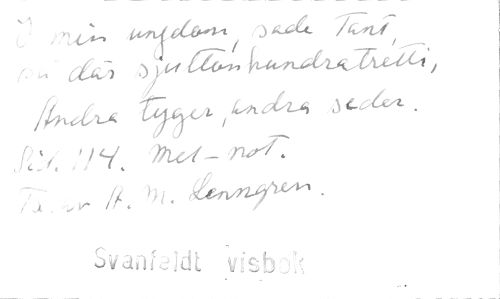 I min ungdom, sade Tant,
nu där sjuttonhundratretti,
Andra tyger, andra seder.
Sid. 114. Mel-not.
Text av A. M. Lenngren.
Svanfeldt visbok